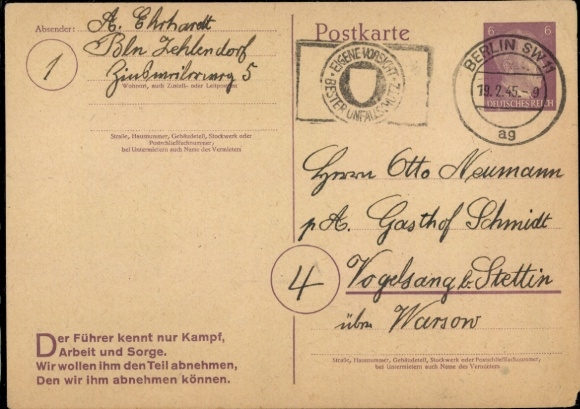 Absender: A. Ehrhardt
Bln Zehlendorf
1
5
Wohnort, auch Zustell- oder Leitpostamt
Straße, Hausnummer, Gebäudeteil, Stockwerk oder
Postschließfachnummer;
bei Untermietern auch Name des Vermieters
Postkarte
EIGENE VORSICHT
BESTER UNFALLSCHUTZ
BERLIN SW 11
19.2.45.-9
ag
6 6
DEUTSCHES REICH
Herrn Otto Neumann
p.A. Gasthof Schmidt
4
Vogelsang b. Stettin
über Warsow
Straße, Hausnummer, Gebäudeteil, Stockwerk oder Postschließfachnummer;
bei Untermietern auch Name des Vermieters
Der Führer kennt nur Kampf,
Arbeit und Sorge.
Wir wollen ihm den Teil abnehmen,
Den wir ihm abnehmen können.